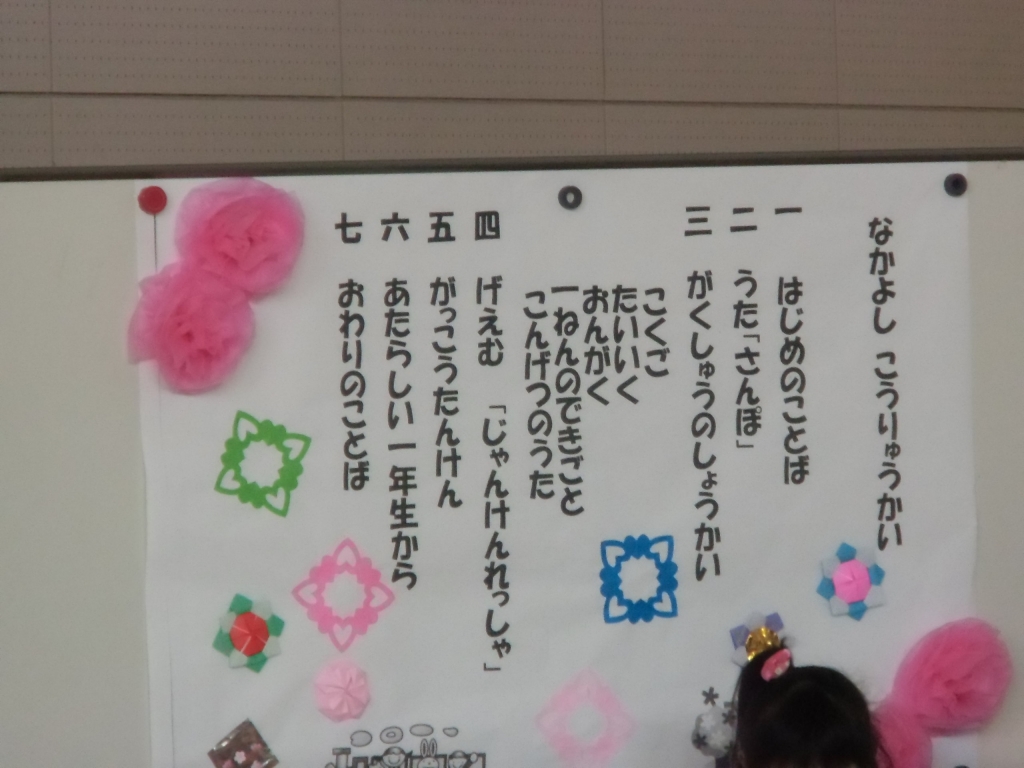 なかよし こうりゅうかい
一 はじめのことば
二 うた「さんぽ」
三 がくしゅうのしょうかい
こくご
たいいく
おんがく
一ねんのできごと
こんげつのうた
四 げえむ 「じゃんけんれっしゃ」
五 がっこうたんけん
六 あたらしい一年生から
七 おわりのことば